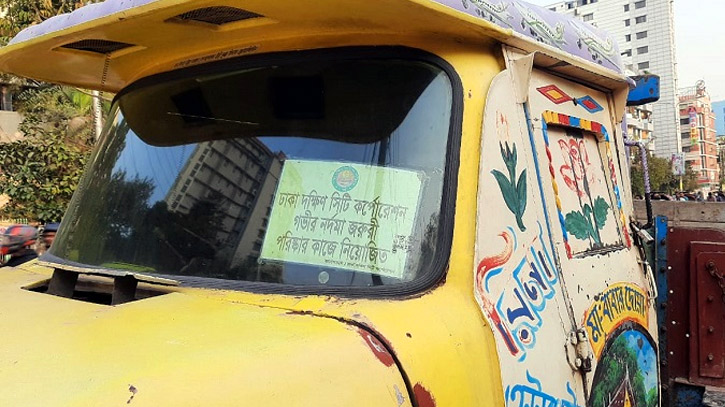 ঢাকা দক্ষিণ সিটি কর্পোরেশন
গভীর নর্দমা জরুরী
পরিষ্কার কাজে নিয়োজিত
মা-বাবার দোয়া